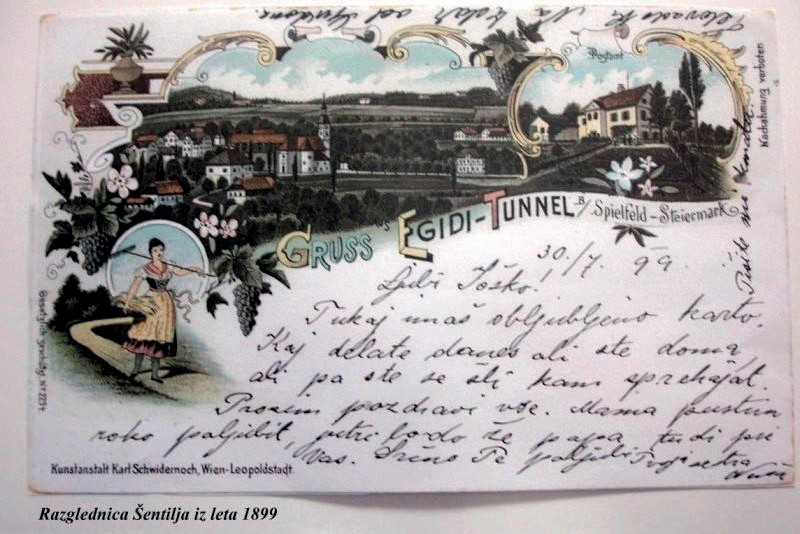 Postamt
Nachahmung verboten
GRUSS AUS EGIDI-TUNNEL B/ Spielfeld-Steiermark
30./7. 99.
Ljubi Joško!
Tukaj imaš obljubljeno karto.
Kaj delate danes ali ste doma
ali pa ste se šli kam sprehajat.
Prosim pozdravi vse. Mama pustim
roko poljubit, jutri bodo že papa tudi pri
Vas. Srčno Te poljubi Tvoja sestra
Pišite mi kmalu!
Gesetzlich geschützt No
Kunstanstalt Karl Schwidernoch, Wien-Leopoldstadt.
Razglednica Šentilja iz leta 1899